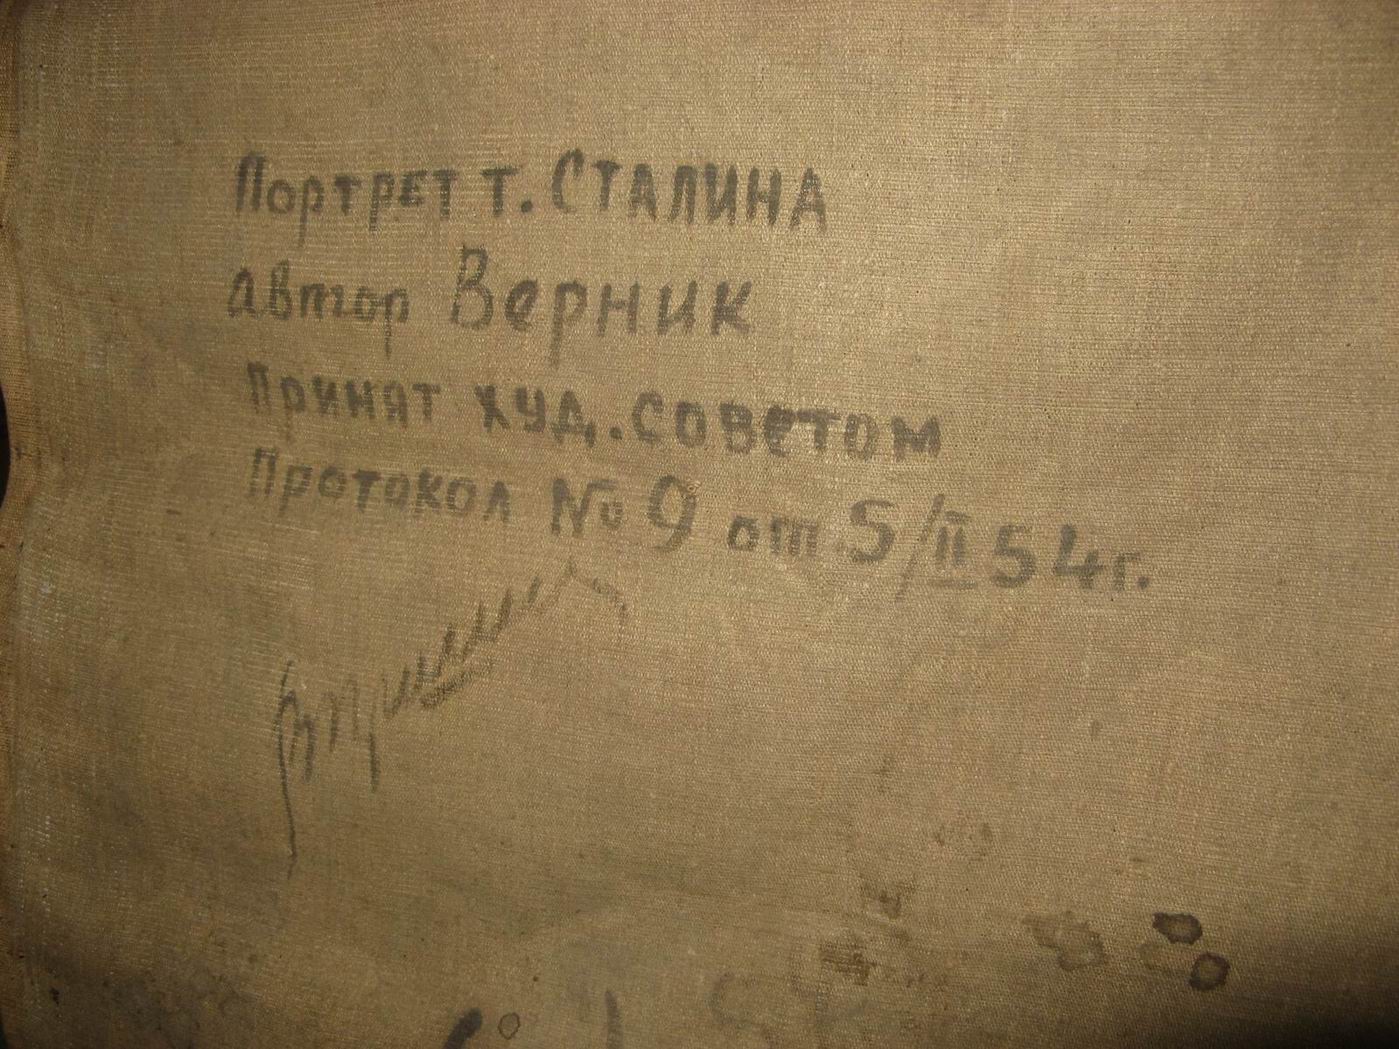 Портрет т. Сталина
автор Верник
Принят худ. советом
Протокол № 9 от 5/II 54г.